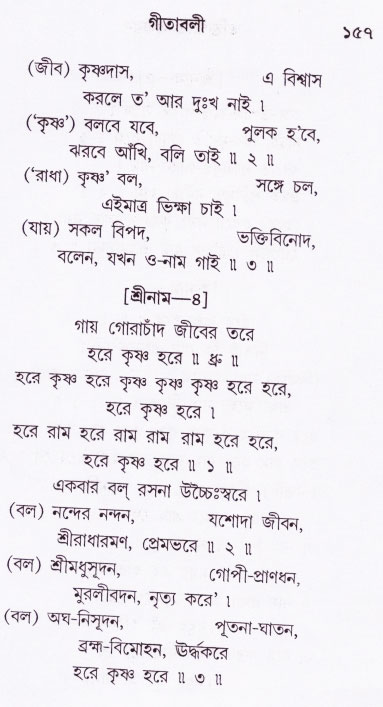 গীতাবলী
১৫৭
(জীব) কৃষ্ণদাস, এ বিশ্বাস
করলে ত' আর দুঃখ নাই ।
('কৃষ্ণ') বলবে যবে, পুলক হ'বে,
ঝরবে আঁখি, বলি তাই ॥ ২ ॥
('রাধা) কৃষ্ণ' বল, সঙ্গে চল,
এইমাত্র ভিক্ষা চাই ।
(যায়) সকল বিপদ, ভক্তিবিনোদ,
বলেন, যখন ও-নাম গাই ॥ ৩ ॥
[শ্রীনাম—৪]
গায় গোরাচাঁদ জীবের তরে
হরে কৃষ্ণ হরে ॥ ধ্রু ॥
হরে কৃষ্ণ হরে কৃষ্ণ কৃষ্ণ কৃষ্ণ হরে হরে,
হরে কৃষ্ণ হরে ।
হরে রাম হরে রাম রাম রাম হরে হরে,
হরে কৃষ্ণ হরে ॥ ১ ॥
একবার বল্ রসনা উচ্চৈঃস্বরে ।
(বল) নন্দের নন্দন, যশোদা জীবন,
শ্রীরাধারমণ, প্রেমভরে ॥ ২ ॥
(বল) শ্রীমধুসূদন, গোপী-প্রাণধন,
মুরলীবদন, নৃত্য করে' ।
(বল) অঘ-নিসূদন, পূতনা-ঘাতন,
ব্রহ্মা-বিমোহন, ঊর্দ্ধকরে
হরে কৃষ্ণ হরে ॥ ৩ ॥